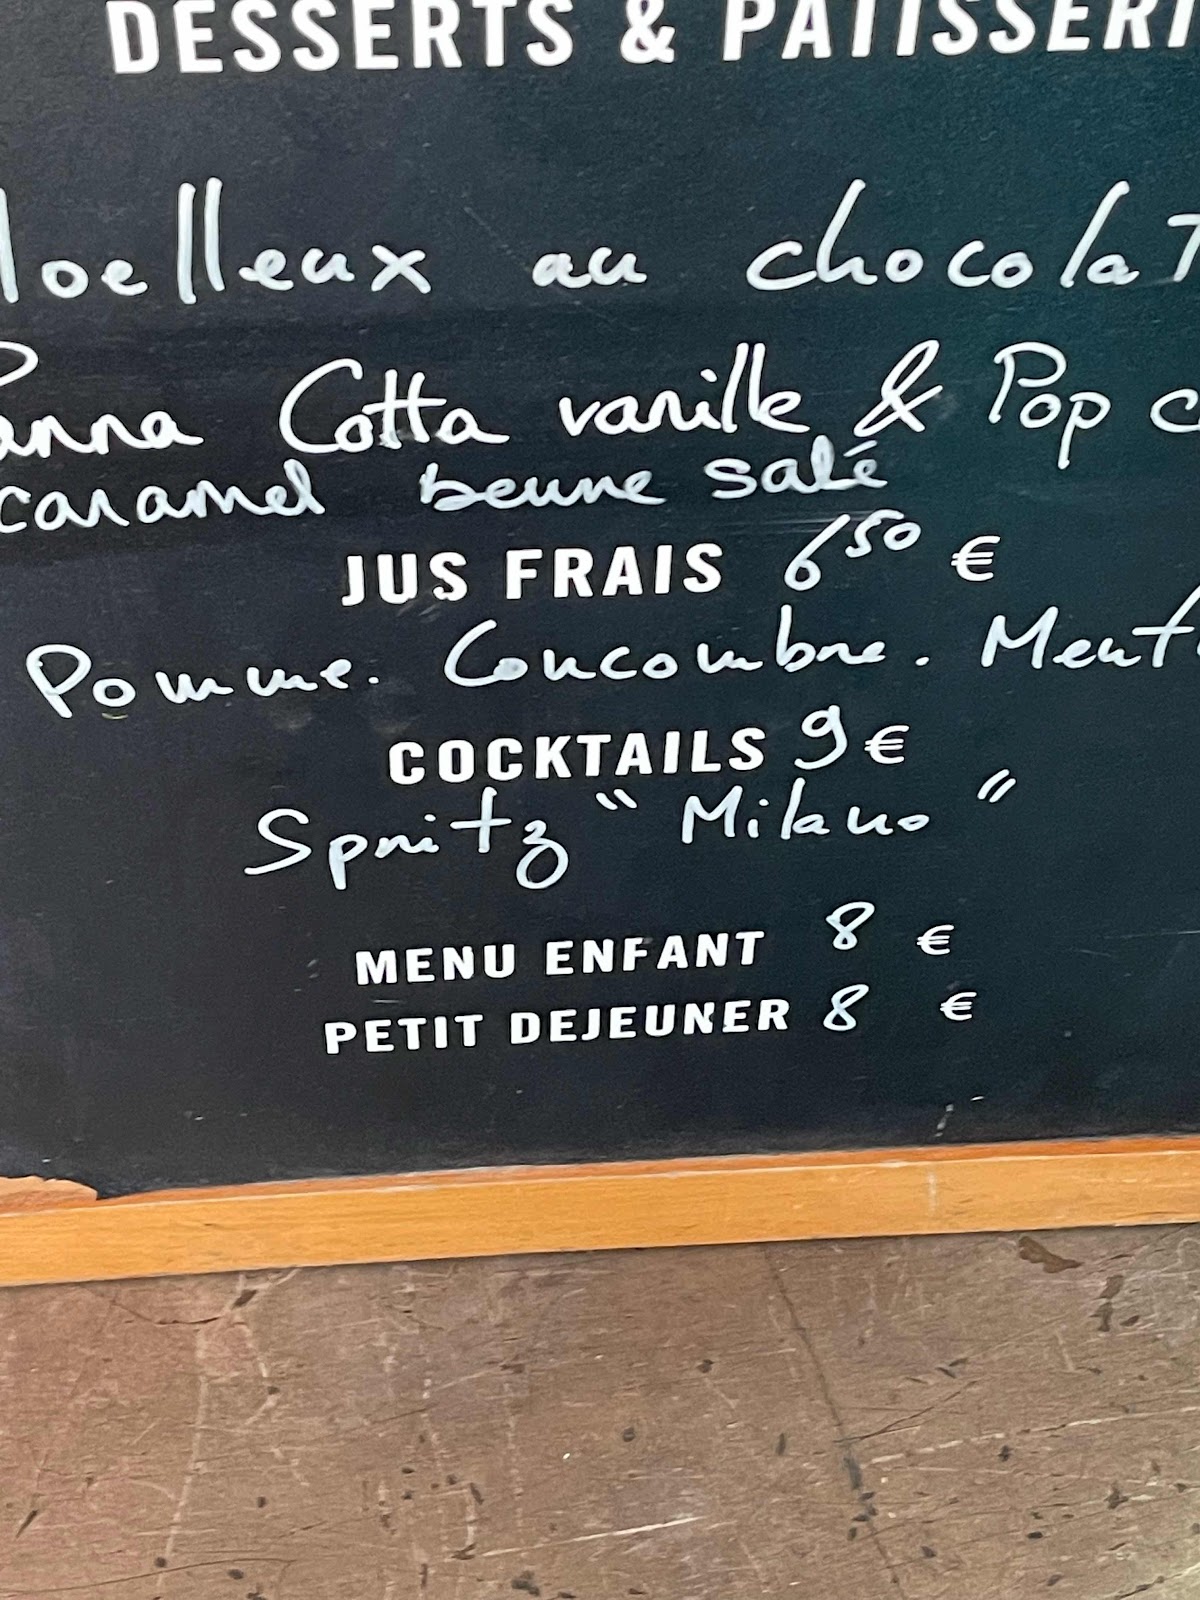 DESSERTS & PATISSERI
loelleux au chocolat
Panna Cotta vanille & Pop c
caramel beurre salé
JUS FRAIS 6⁵⁰ €
Pomme. Concombre. Menthe
COCKTAILS 9 €
Spritz "Milano"
MENU ENFANT 8 €
PETIT DEJEUNER 8 €